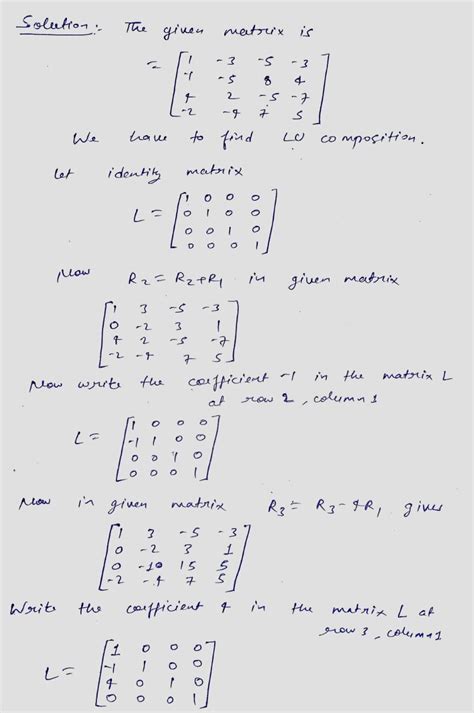 Solution:- The given matrix is
= [ 1 -3 -5 -3
-1 -5 8 4
4 2 -5 -7
-2 -4 7 5 ]
We have to find LU composition.
Let identity matrix
L = [ 1 0 0 0
0 1 0 0
0 0 1 0
0 0 0 1 ]
Now R2 = R2+R1 in given matrix
[ 1 3 -5 -3
0 -2 3 1
4 2 -5 -7
-2 -4 7 5 ]
Now write the coefficient -1 in the matrix L
at row 2, column 1
L = [ 1 0 0 0
-1 1 0 0
0 0 1 0
0 0 0 1 ]
Now in given matrix R3 = R3-4R1 gives
[ 1 3 -5 -3
0 -2 3 1
0 -10 15 5
-2 -4 7 5 ]
Write the coefficient 4 in the matrix L at
row 3, column 1
L = [ 1 0 0 0
-1 1 0 0
4 0 1 0
0 0 0 1 ]